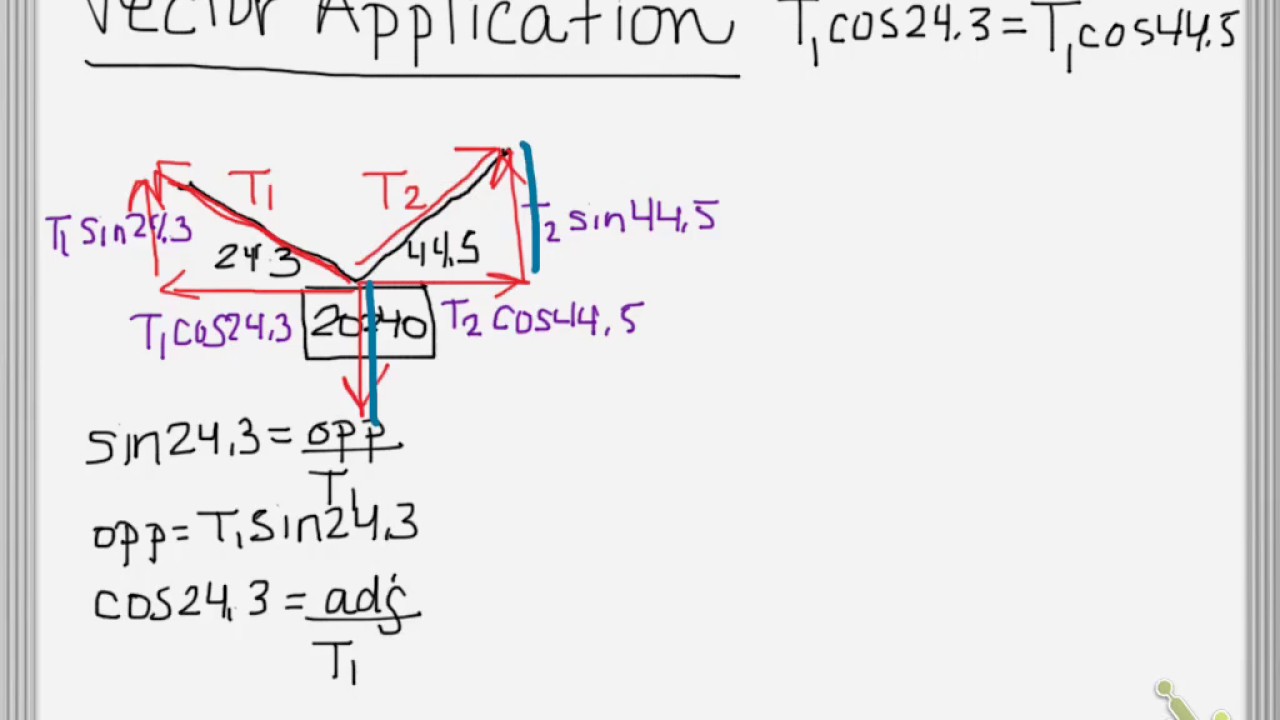 Vector Application
T₁cos24.3=T₁cos44.5
T₁
T₂
T₁sin24.3
T₂sin44.5
24.3
44.5
T₁cos24.3
20240
T₂cos44.5
sin24.3=opp/T₁
opp=T₁sin24.3
cos24.3=adj/T₁